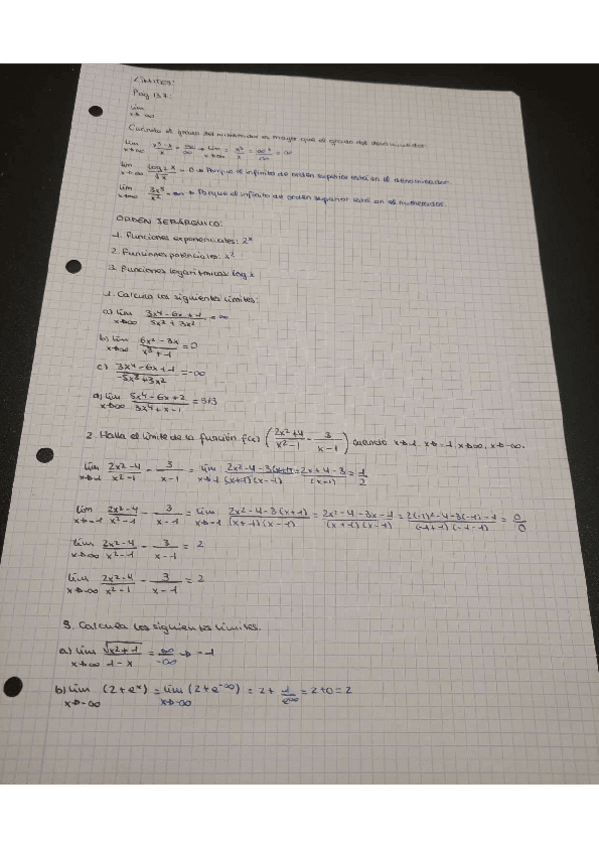 LÍMITES:
Pag 137:
lim
x→∞
Cuando el grado del numerador es mayor que el grado del denominador.
lim x→∞ = ∞/∞ → lim x→∞ = ∞
lim x→∞ log₂x = 0 → Porque el infinito de orden superior está en el denominador.
lim x→∞ 3x³/x² = ∞ → Porque el infinito de orden superior está en el numerador.
ORDEN JERÁRQUICO:
1. Funciones exponenciales: 2ˣ
2. Funciones potenciales: x²
3. Funciones logarítmicas: log x
1. Calcula los siguientes límites:
a) lim x→∞ (3x⁴-6x+1)/(5x²+3x²) = ∞
b) lim x→∞ (6x²-3x)/(x³+1) = 0
c) (3x⁴-6x+1)/(-5x³+3x²) = -∞
d) lim x→∞ (5x⁴-6x+2)/(3x⁴+x-1) = 5/3
2. Halla el límite de la función f(x) ((2x²+4)/(x²-1) - 3/(x-1)) cuando x→1, x→-1, x→∞, x→-∞.
lim x→1 (2x²-4)/(x²-1) - 3/(x-1) = lim x→1 (2x²-4-3(x+1))/((x+1)(x-1)) = (2x+4-3)/(x+1) = 1/2
lim x→-1 (2x²-4)/(x²-1) - 3/(x-1) = lim x→-1 (2x²-4-3(x+1))/((x+1)(x-1)) = (2x²-4-3x-1)/((x+1)(x-1)) = (2(-1)²-4-3(-1)-1)/((-1+1)(-1-1)) = 0/0
lim x→∞ (2x²-4)/(x²-1) - 3/(x-1) = 2
lim x→-∞ (2x²-4)/(x²-1) - 3/(x-1) = 2
3. Calcula los siguientes límites.
a) lim x→∞ √(x²+1)/(1-x) = ∞/-∞ → -1
b) lim x→-∞ (2+eˣ) = lim x→-∞ (2+e^-∞) = 2 + 1/e^∞ = 2+0 = 2